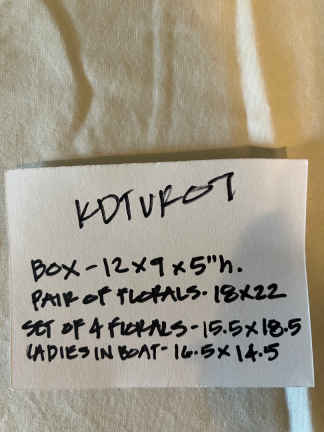 KDTUROT
BOX - 12 x 9 x 5"h.
PAIR OF FLORALS - 18X22
SET OF 4 FLORALS - 15.5 X 18.5
LADIES IN BOAT - 16.5 X 14.5